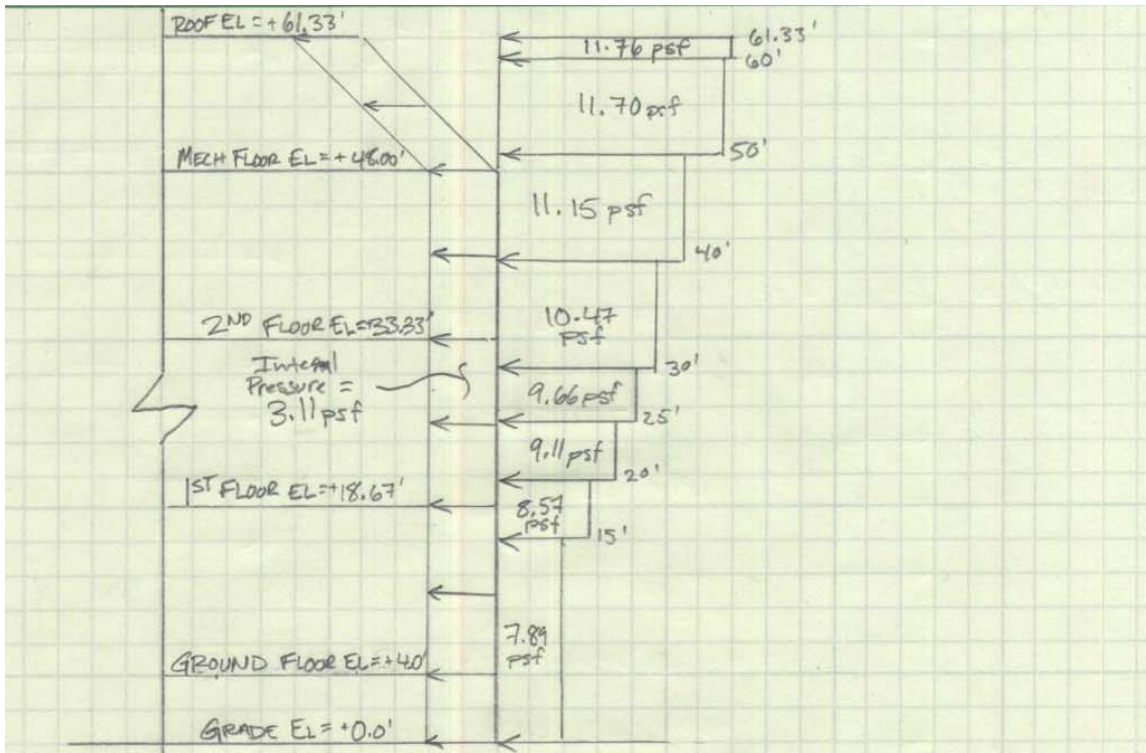 ROOF EL = +61.33'
11.76 psf
61.33'
60'
11.70 psf
50'
MECH FLOOR EL = +48.00'
11.15 psf
40'
2ND FLOOR EL=+33.33'
10.47
psf
30'
Internal
Pressure =
3.11 psf
9.66 psf
25'
9.11 psf
20'
1ST FLOOR EL=+18.67'
8.57
psf
15'
7.89
psf
GROUND FLOOR EL=+4.0'
GRADE EL = +0.0'